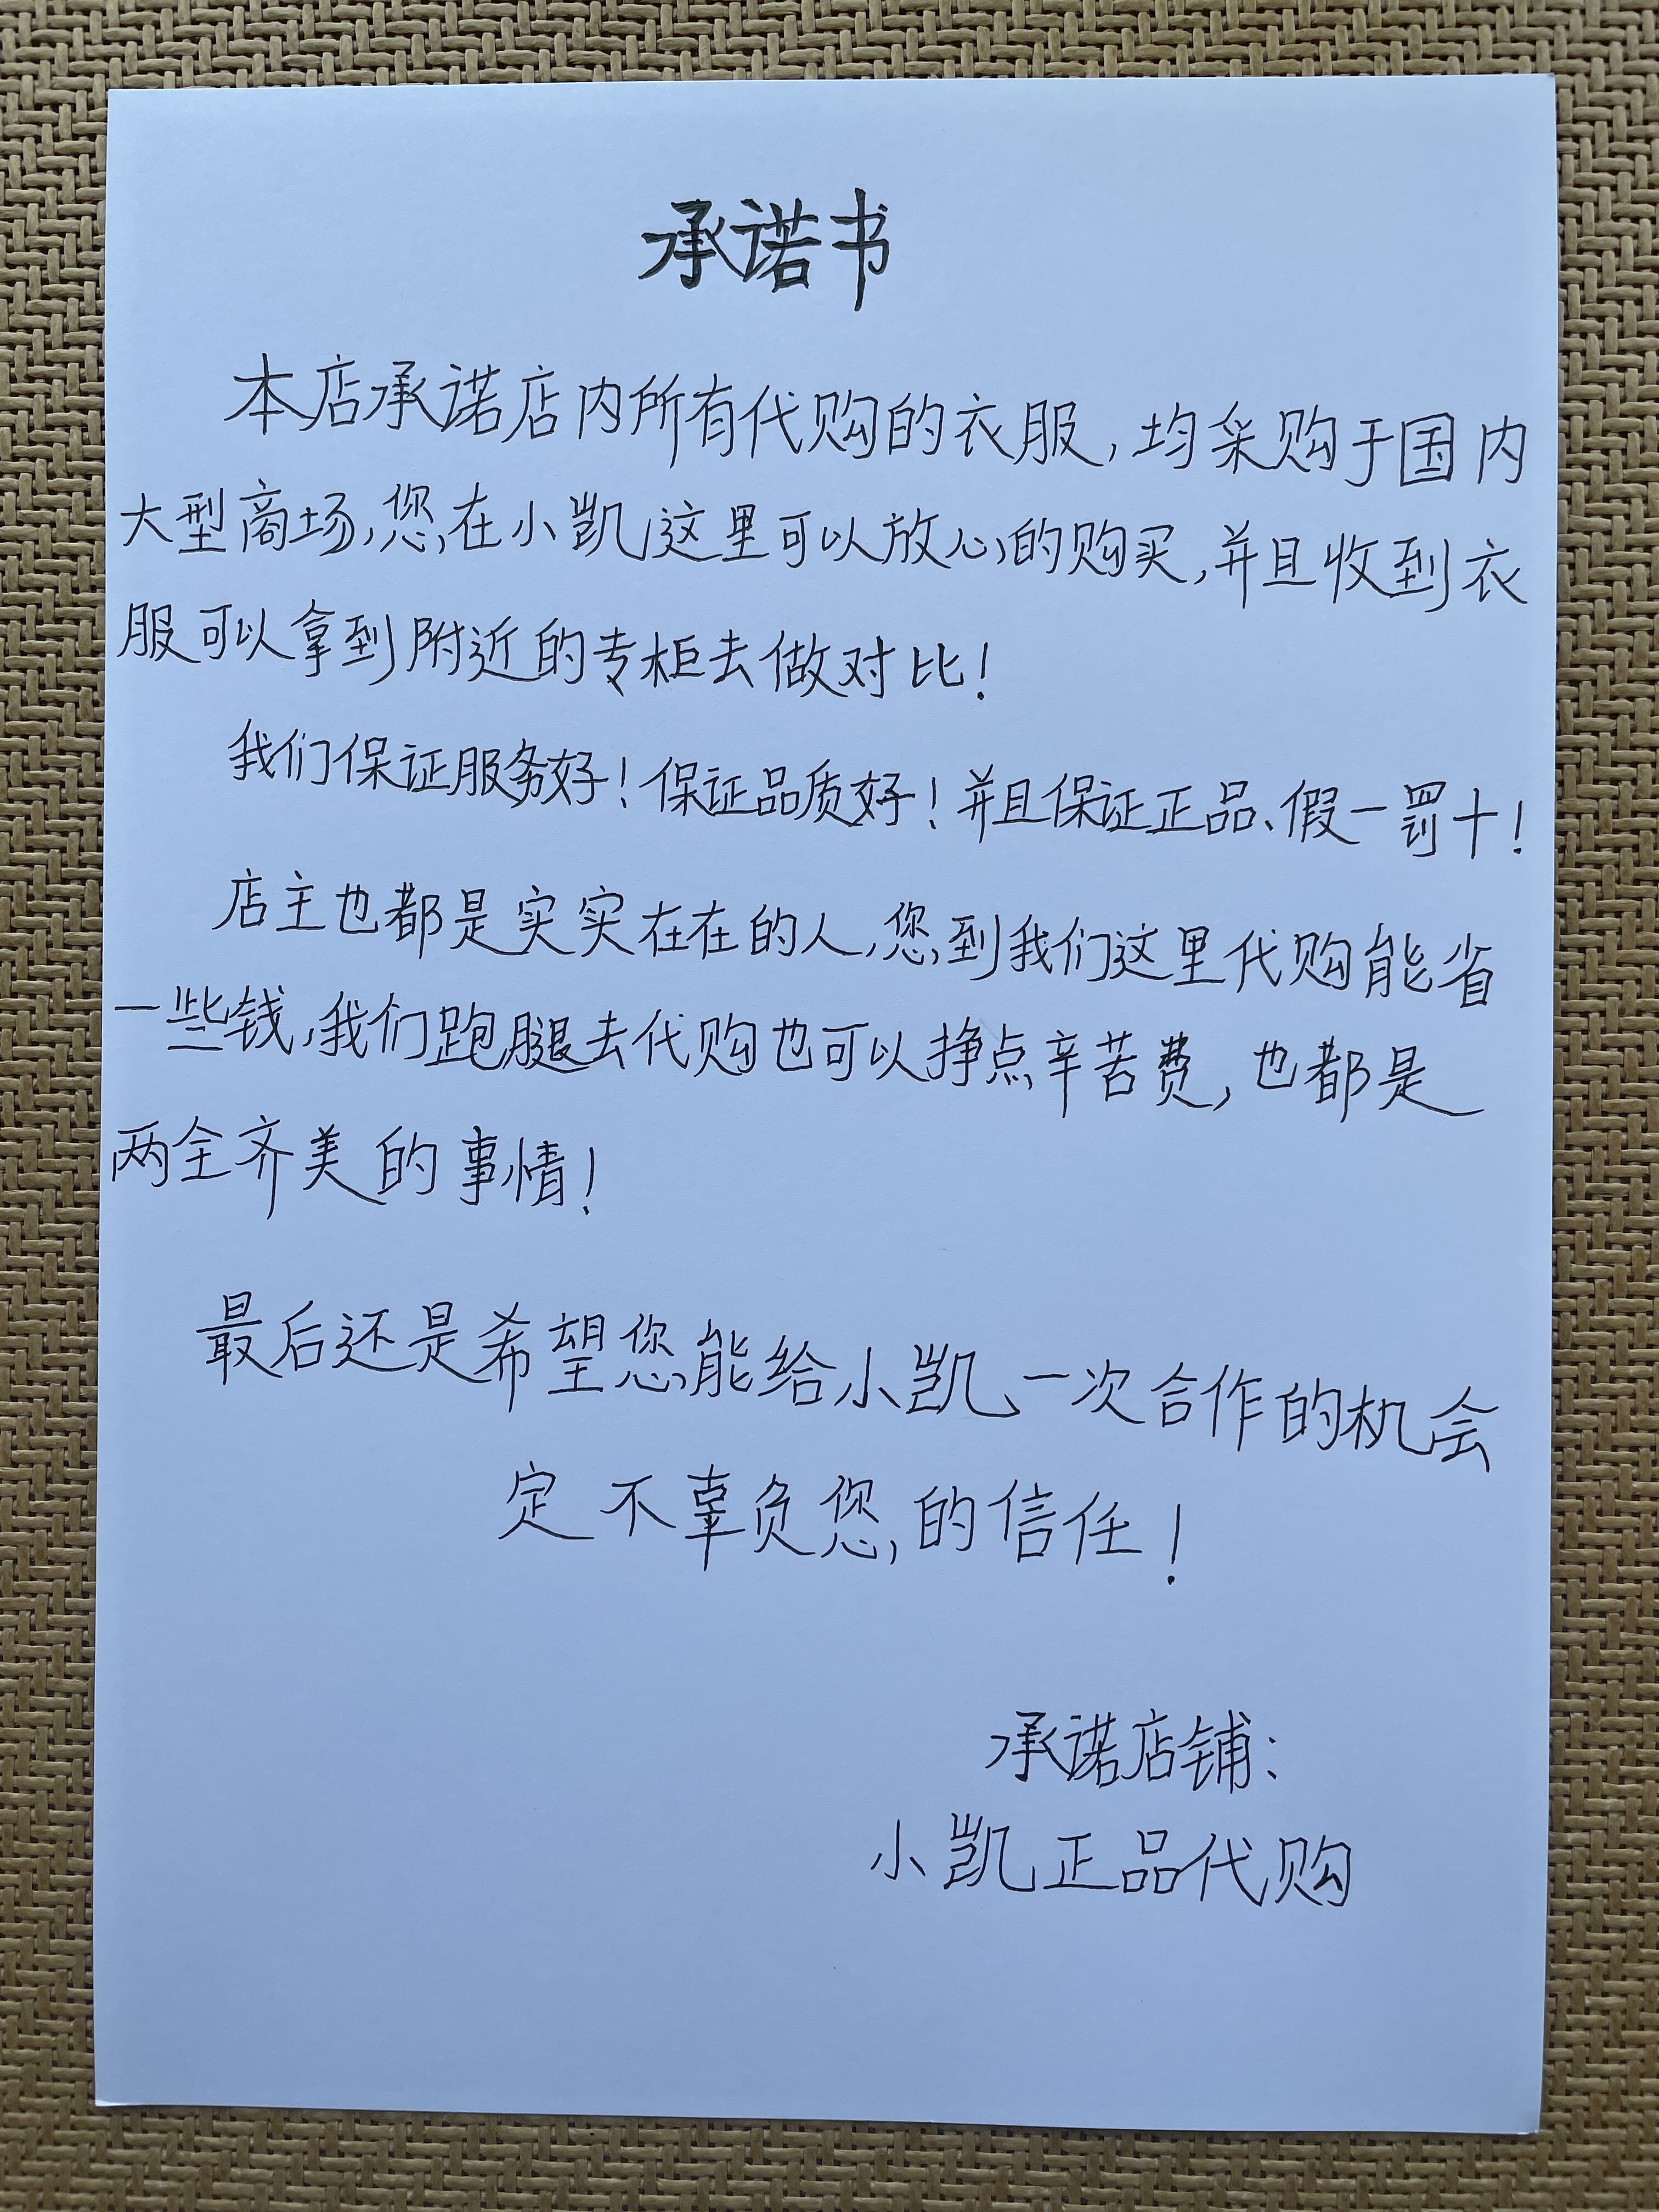 承诺书
本店承诺店内所有代购的衣服，均采购于国内
大型商场，您在小凯这里可以放心的购买，并且收到衣
服可以拿到附近的专柜去做对比！
我们保证服务好！保证品质好！并且保证正品、假一罚十！
店主也都是实实在在的人，您到我们这里代购能省
一些钱，我们跑腿去代购也可以挣点辛苦费，也都是
两全齐美的事情！
最后还是希望您能给小凯一次合作的机会
定不辜负您的信任！
承诺店铺：
小凯正品代购